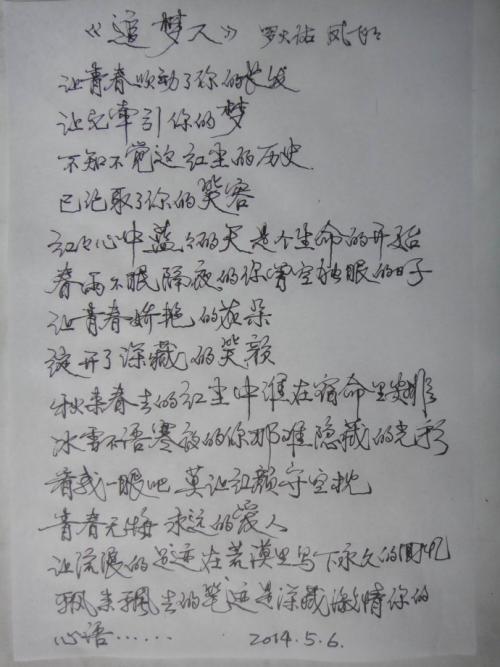 《追梦人》 罗大佑 凤飞飞
让青春吹动了你的长发
让它牵引你的梦
不知不觉这红尘的历史
已记取了你的笑容
红红心中蓝蓝的天是个生命的开始
春雨不眠隔夜的你曾空独眠的日子
让青春娇艳的花朵
绽开了深藏的笑颜
秋来春去的红尘中谁在宿命里安排
冰雪不语寒夜的你那难隐藏的光彩
看我一眼吧 莫让红颜守空枕
青春无悔 永远的爱人
让流浪的足迹在荒漠里写下永久的回忆
飘来飘去的笔迹是深藏激情你的
心语……
2014.5.6.